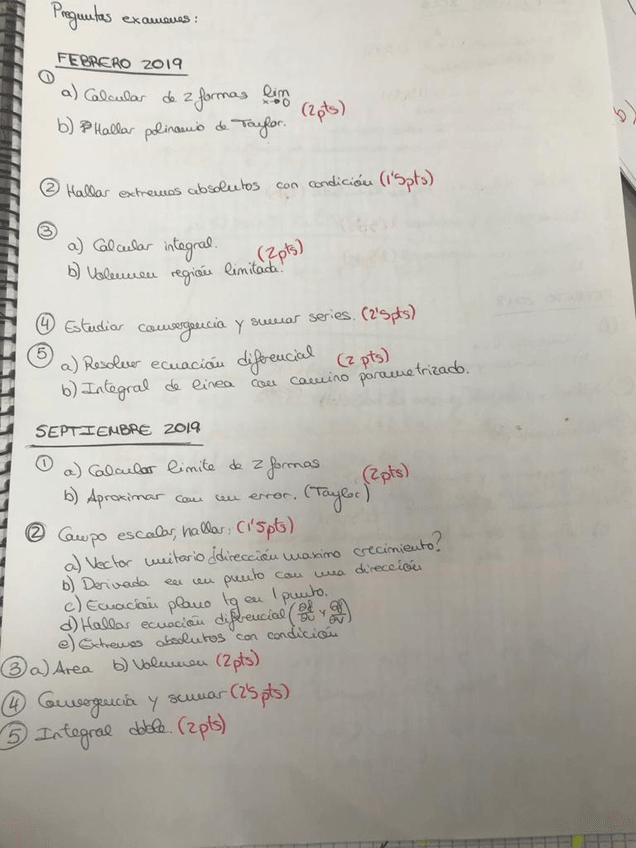 Preguntas examenes:
FEBRERO 2019
① a) Calcular de 2 formas lim x→0
(2pts)
b) Hallar polinomio de Taylor.
② Hallar extremos absolutos con condición (1'5pts)
③ a) Calcular integral.
(2pts)
b) Volumen región limitada.
④ Estudiar convergencia y sumar series. (2'5pts)
⑤ a) Resolver ecuación diferencial (2 pts)
b) Integral de linea con camino parametrizado.
SEPTIEMBRE 2019
① a) Calcular limite de 2 formas
(2pts)
b) Aproximar con un error. (Taylor)
② Campo escalar, hallar: (1'5pts)
a) Vector unitario ¿dirección maximo crecimiento?
b) Derivada en un punto con una dirección
c) Ecuación plano tg en 1 punto.
d) Hallar ecuación diferencial (∂f/∂u y ∂f/∂v)
e) Extremos absolutos con condición
③ a) Area b) Volumen (2pts)
④ Convergencia y sumar (2'5 pts)
⑤ Integral doble. (2pts)
b)